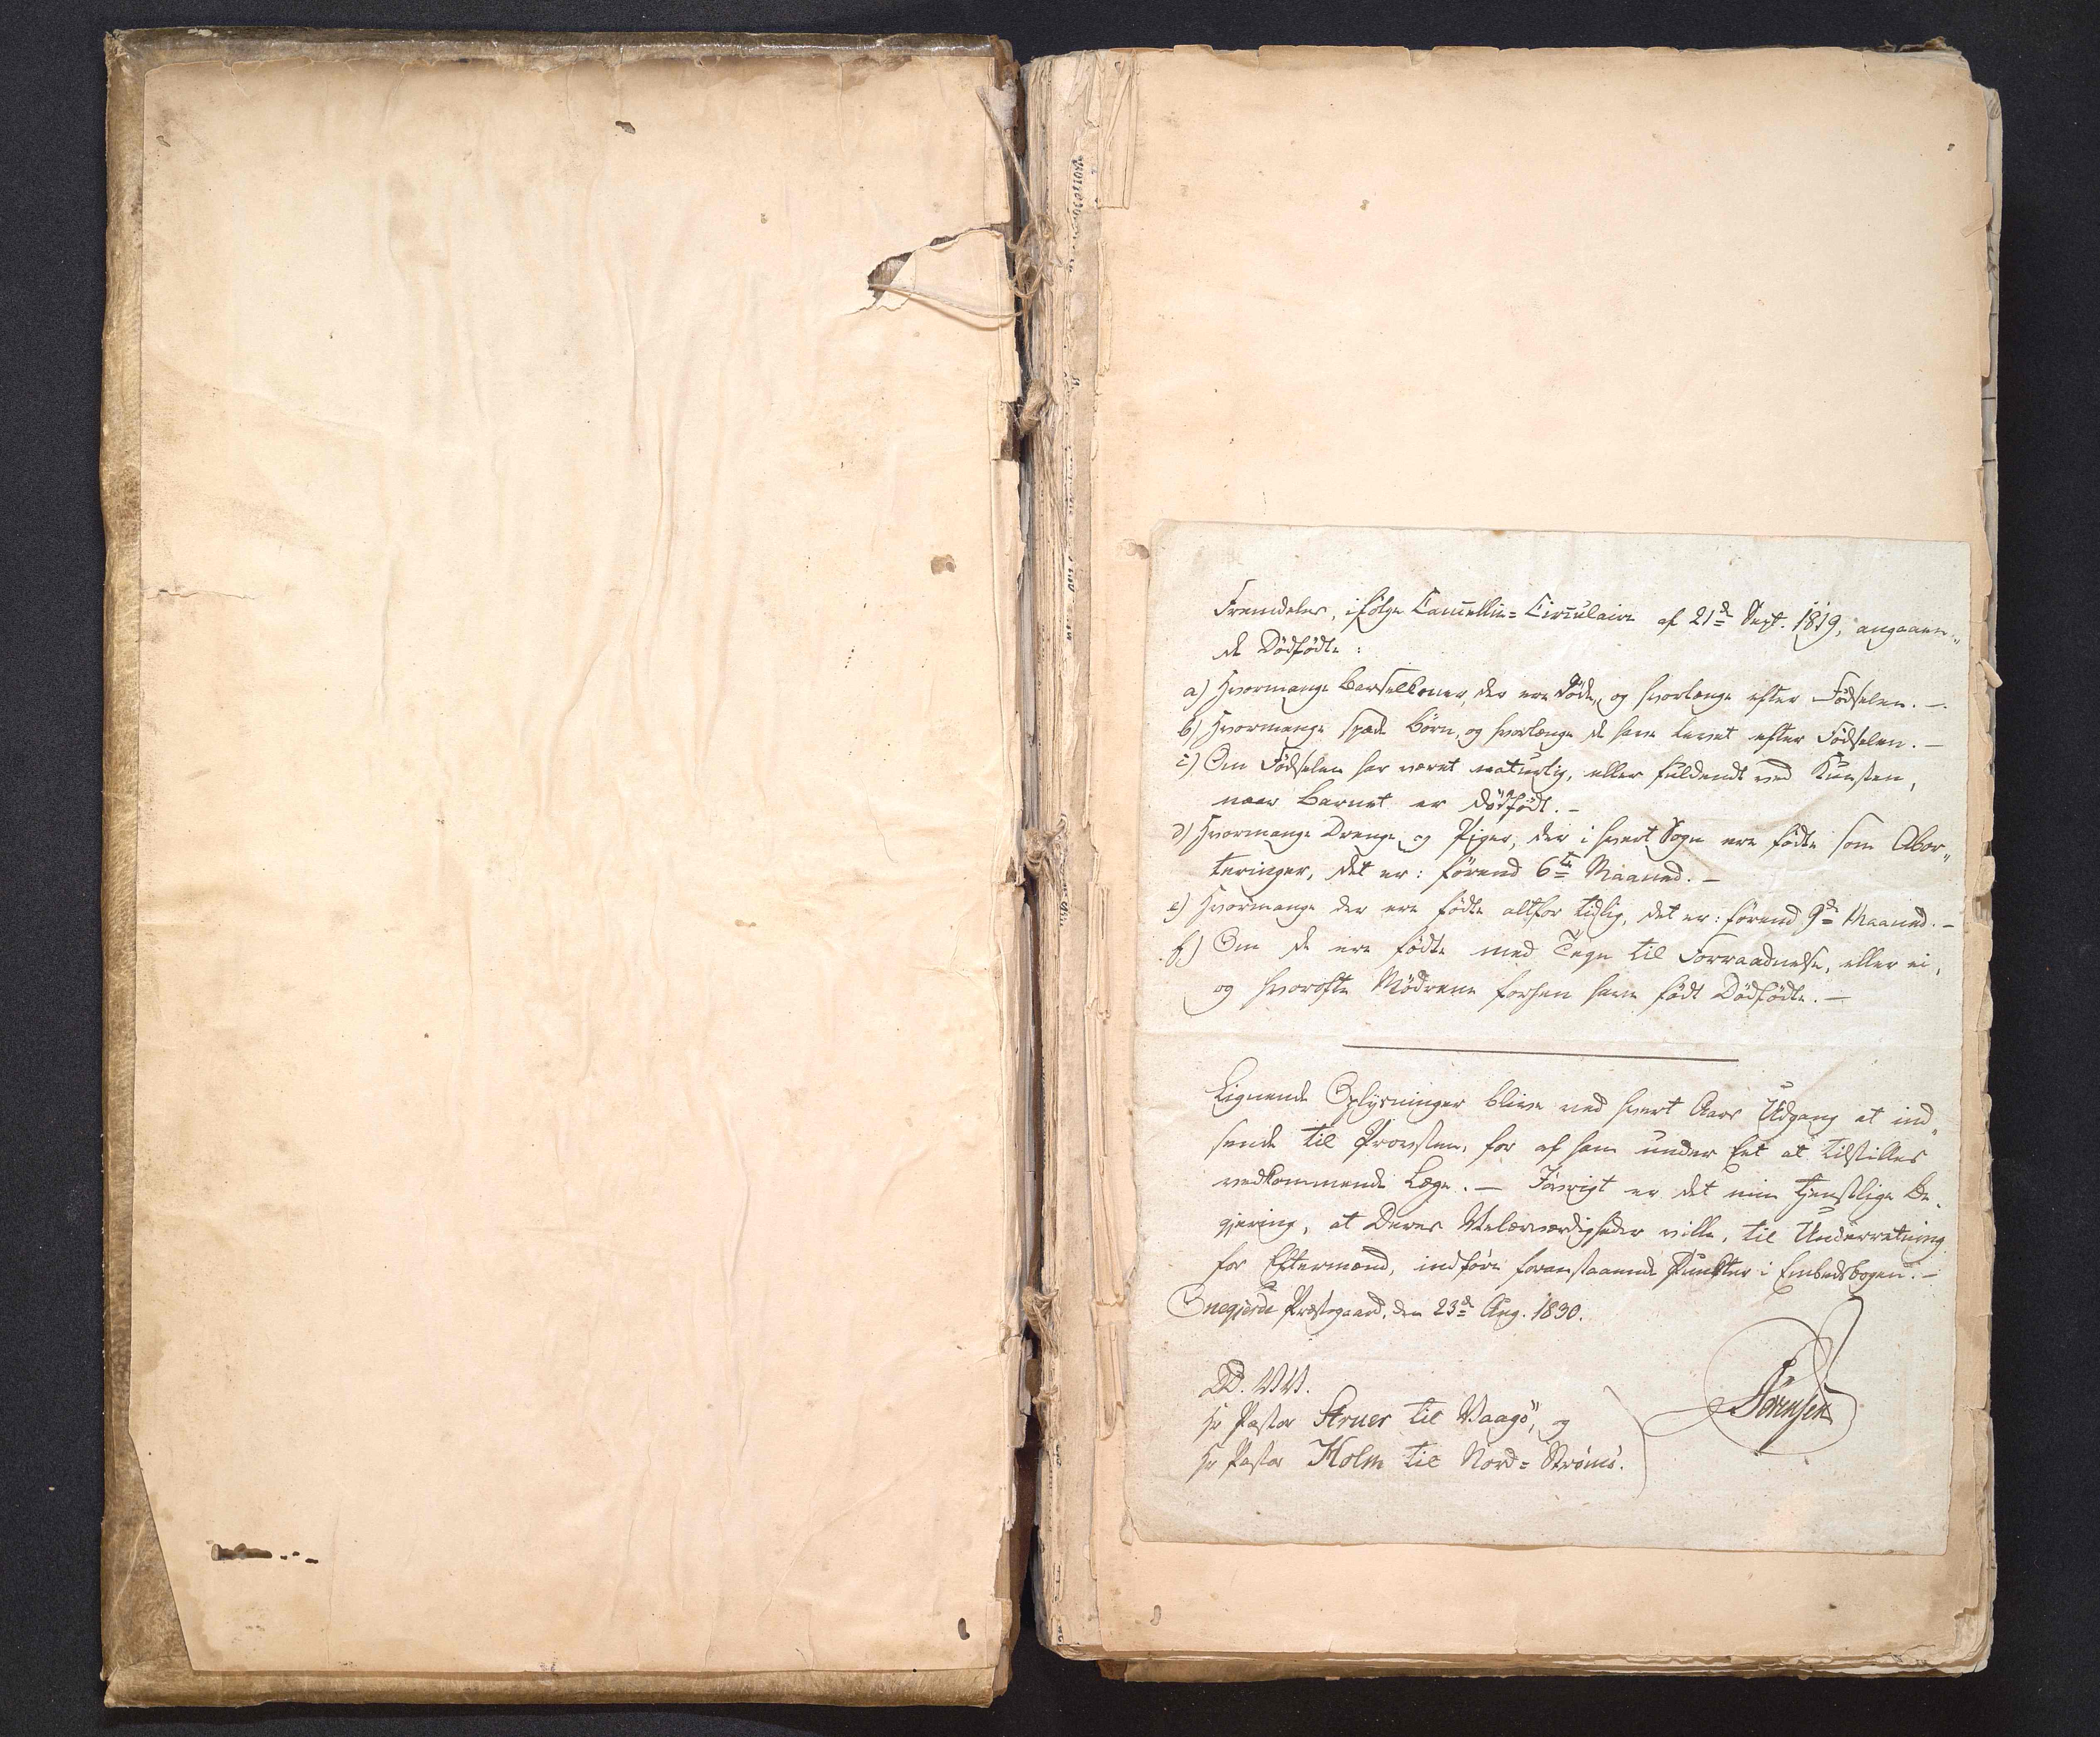 Fremdeles, ifølge Cancellie-Circulaire af 21de Sept. 1819, angaaen„
de Dødfødte:
a) Hvormange Barselkoner, der ere døde, og hvorlænge efter Fødselen. —
b) Hvormange spæde Børn, og hvorlænge de have levet efter Fødselen. —
c) Om Fødselen har været naturlig, eller fuldendt ved Kunsten,
naar Barnet er dødfødt. —
d) Hvormange Drenge og Piger, der i hvert Sogn ere fødte som Abor„
teringer, det er: førend 6te Maaned. —
e) Hvormange der ere fødte altfor tidlig, det er: førend 9de Maaned. —
f) Om de ere fødte med Tegn til Forraadnelse, eller ei,
og hvorofte Mødrene forhen have født Dødfødte. —
Lignende Oplysninger blive ved hvert Aars Udgang at ind„
sende til Provsten, for af ham under Eet at tilstilles
vedkommende Læge. — Iøvrigt er det min tjenstlige Be„
gjering, at Deres Velærværdigheder ville, til Underretning
for Eftermænd, indføre foranstaaende Puncter i Embedsbogen. —
Præstegaard, den 23de Aug. 1830.
DD. VV.
Hr Pastor Struer til Vaagö, og
Hr Pastor Holm til Nord-Strömö.
Sörensen